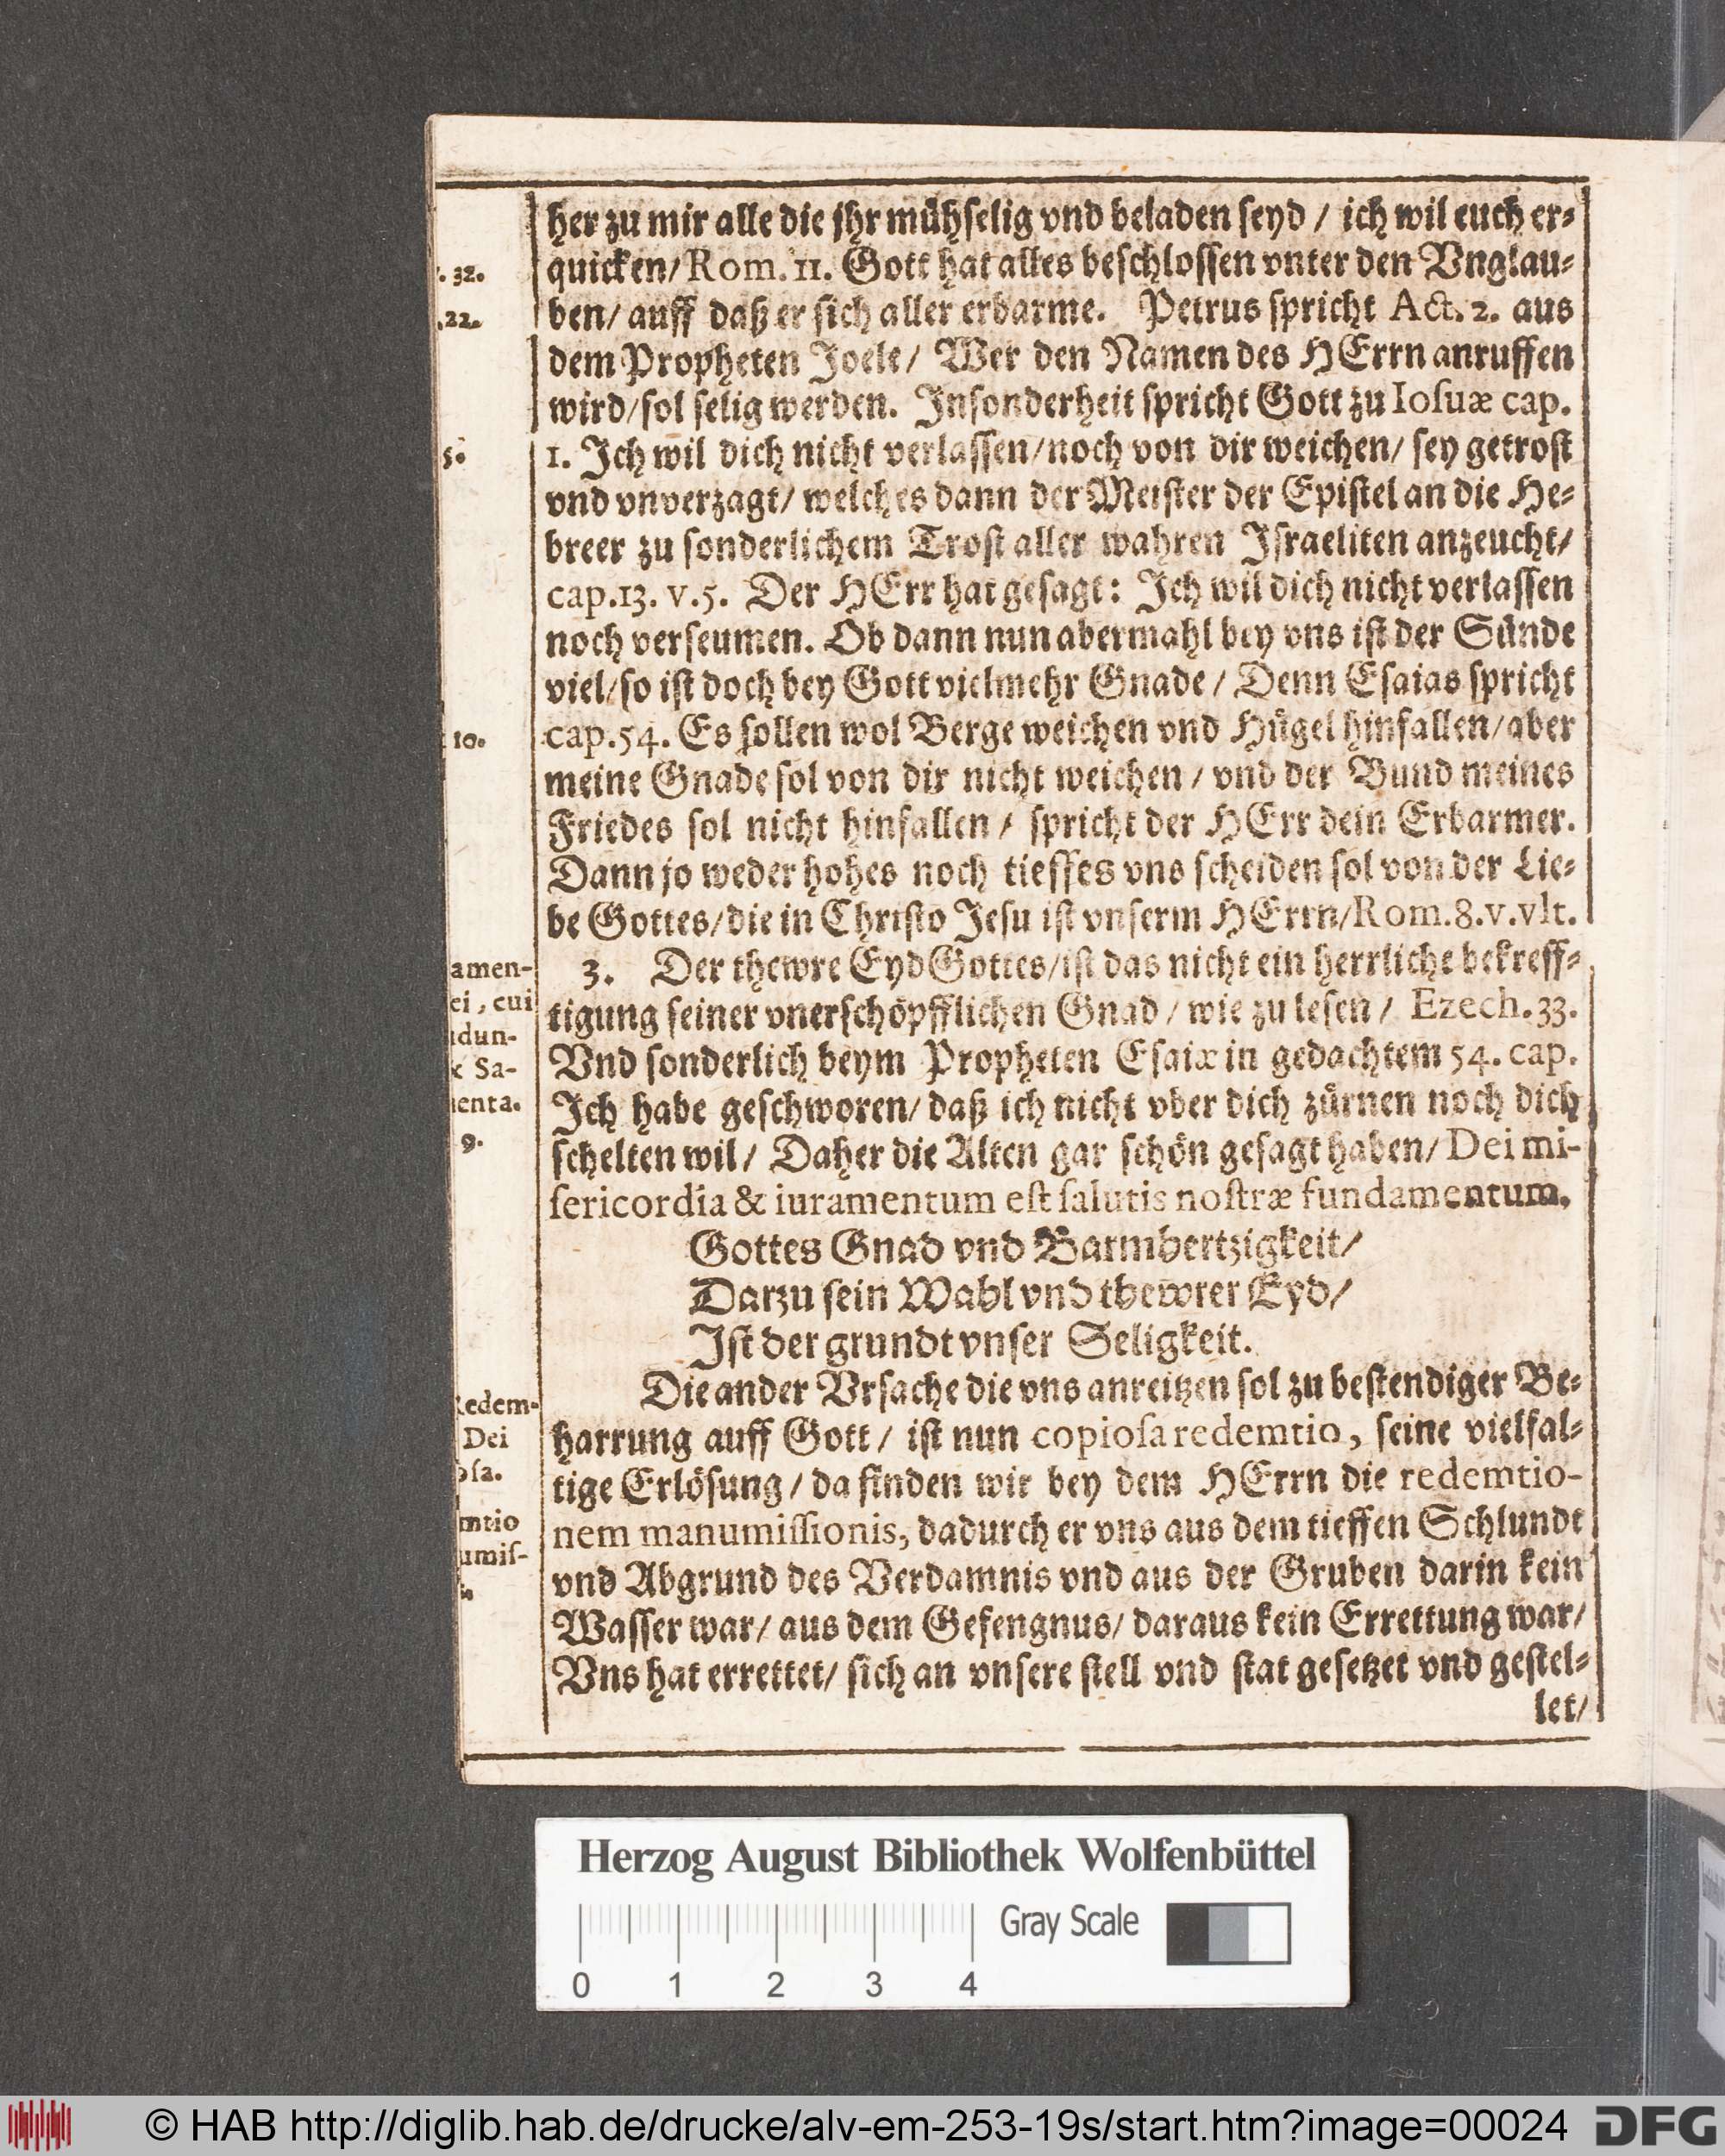 her zu mir alle die jhr mühselig vnd beladen seyd / ich wil euch er⸗
quicken/ Rom. 11. Gott hat alles beschlossen vnter den Vnglau⸗
ben/ auff daß er sich aller erbarme. Petrus spricht Act. 2. aus
dem Propheten Joele/ Wer den Namen des HErrn anruffen
wird/ sol selig werden. Insonderheit spricht Gott zu Iosuæ cap.
1. Ich wil dich nicht verlassen/ noch von dir weichen/ sey getrost
vnd vnverzagt/ welches dann der Meister der Epistel an die He⸗
breer zu sonderlichem Trost aller wahren Israeliten anzeucht/
cap. 13. v. 5. Der HErr hat gesagt: Ich wil dich nicht verlassen
noch verseumen. Ob dann nun abermahl bey vns ist der Sünde
viel/ so ist doch bey Gott vielmehr Gnade / Denn Esaias spricht
cap. 54. Es sollen wol Berge weichen vnd Hügel hinfallen/ aber
meine Gnade sol von dir nicht weichen / vnd der Bund meines
Friedes sol nicht hinfallen / spricht der HErr dein Erbarmer.
Dann jo weder hohes noch tieffes vns scheiden sol von der Lie⸗
be Gottes/ die in Christo Jesu ist vnserm HErrn/ Rom. 8. v. vlt.
3. Der thewre Eyd Gottes/ ist das nicht ein herrliche bekreff⸗
tigung seiner vnerschöpfflichen Gnad / wie zu lesen / Ezech. 33.
Vnd sonderlich beym Propheten Esaiæ in gedachtem 54. cap.
Ich habe geschworen/ daß ich nicht vber dich zürnen noch dich
schelten wil / Daher die Alten gar schön gesagt haben/ Dei mi-
sericordia & iuramentum est salutis nostræ fundamentum.
Gottes Gnad vnd Barmhertzigkeit/
Darzu sein Wahl vnd thewrer Eyd/
Ist der grundt vnser Seligkeit.
Die ander Vrsache die vns anreitzen sol zu bestendiger Be⸗
harrung auff Gott / ist nun copiosa redemtio, seine vielfal⸗
tige Erlösung / da finden wir bey dem HErrn die redemtio-
nem manumissionis, dadurch er vns aus dem tieffen Schlundt
vnd Abgrund des Verdamnis vnd aus der Gruben darin kein
Wasser war/ aus dem Gefengnus/ daraus kein Errettung war/
Vns hat errettet/ sich an vnsere stell vnd stat gesetzet vnd gestel⸗
let/
. 32.
22.
5.
10.
amen-
ei, cui
dun-
& Sa-
enta.
9.
edem-
Dei
osa.
mtio
umis-
Herzog August Bibliothek Wolfenbüttel
Gray Scale
0 1 2 3 4
© HAB http://diglib.hab.de/drucke/alv-em-253-19s/start.htm?image=00024
DFG